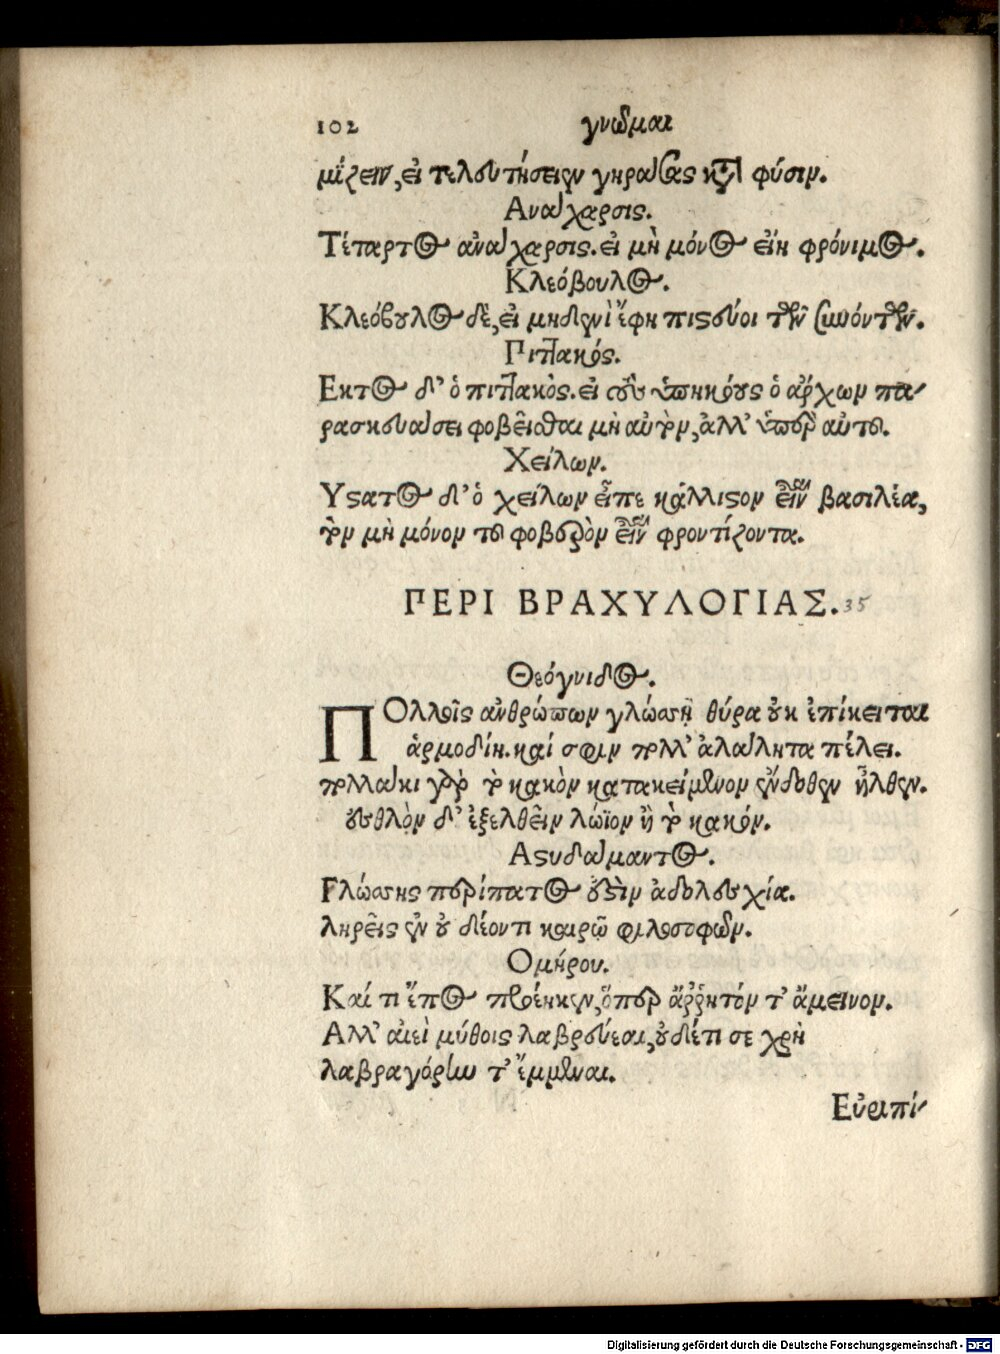 102 γνῶμαι
μίζειν, εἰ τελευτήσειεν γηράσας κατὰ φύσιν.
Ανάχαρσις.
Τέταρτος ἀνάχαρσις. εἰ μὴ μόνος εἴη φρόνιμος.
Κλεόβουλος.
Κλεόβουλος δὲ, εἰ μηδενὶ ἔφη πιστεύοι τῶν συνόντων.
Πιττακός.
Εκτος δ' ὁ πιττακὸς. εἰ τοὺς ὑπηκόους ὁ ἄρχων πα-
ρασκευάσει φοβεῖσθαι μὴ αὐτὸν, ἀλλ' ὑπὲρ αὐτοῦ.
Χείλων.
Υστατος δ' ὁ χείλων εἶπε κάλλιστον εἶναι βασιλέα,
τὸν μὴ μόνον τοῦ φοβερὸν εἶναι φροντίζοντα.
ΠΕΡΙ ΒΡΑΧΥΛΟΓΙΑΣ. 35
Θεόγνιδος.
ΠΟλλοῖς ἀνθρώπων γλώσσῃ θύρα οὐκ ἐπίκειται
ἁρμοδίη. καί σφιν πολλ' ἀλάλητα πέλει.
πολλάκι γὰρ τὸ κακὸν κατακείμενον ἔνδοθεν ἦλθεν.
ἐσθλὸν δ' ἐξελθεῖν λώϊον ἢ τὸ κακόν.
Αστυδάμαντος.
Γλώσσης περίπατος ἐστὶν ἀδολεσχία.
ληρεῖς ἐν οὐ δέοντι καιρῷ φιλοσοφῶν.
Ομήρου.
Καί τι ἔπος προέηκεν, ὅπερ ἄῤῥητόν τ' ἄμεινον.
Αλλ' αἰεὶ μύθοις λαβρεύεαι, οὐδέτι σε χρὴ
λαβραγόρην τ' ἔμμεναι.
Εὐριπί-
Digitalisierung gefördert durch die Deutsche Forschungsgemeinschaft - DFG